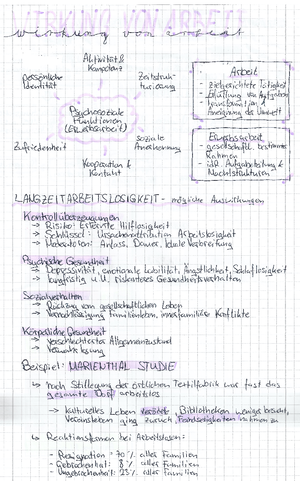 WIRKUNG VON ARBEIT
wirkung von arbeit
Aktivität &
Kompetenz
persönliche
Identität
Zeitstruk-
turierung
Psychosoziale
Funktionen
(Erwerbsarbeit)
Zufriedenheit
soziale
Anerkennung
Kooperation &
Kontakt
Arbeit
- zielgerichtete Tätigkeit
- Erfüllung von Aufgaben
- Transformation &
Aneignung der Umwelt
Erwerbsarbeit
- gesellschaftl. bestimmter
Rahmen
- idR Aufgabenteilung &
Machtstrukturen
LANGZEITARBEITSLOSIGKEIT - mögliche Auswirkungen
Kontrollüberzeugungen
→ Risiko: Erlernte Hilflosigkeit
→ Schlüssel: Ursachenattribution Arbeitslosigkeit
→ Moderatoren: Anlass, Dauer, lokale Verbreitung
Psychische Gesundheit
→ Depressivität, emotionale Labilität, Ängstlichkeit, Schlaflosigkeit
→ langfristig u.U. riskanteres Gesundheitsverhalten
Sozialverhalten
→ Rückzug vom gesellschaftlichen Leben
→ Vernachlässigung Familienleben, innerfamiliäre Konflikte
Körperliche Gesundheit
→ verschlechterter Allgemeinzustand
→ Verwahrlosung
Beispiel: MARIENTHAL STUDIE
↳ nach Stilllegung der örtlichen Textilfabrik war fast das
gesamte Dorf arbeitslos
→ kulturelles Leben verödete, Bibliotheken weniger besucht,
Vereinsleben ging zurück, Feindseligkeiten nahmen zu
↳ Reaktionsformen bei Arbeitslosen:
- Resignation = 70% aller Familien
- Gebrochenheit: 8% aller Familien
- Ungebrochenheit: 23% aller Familien